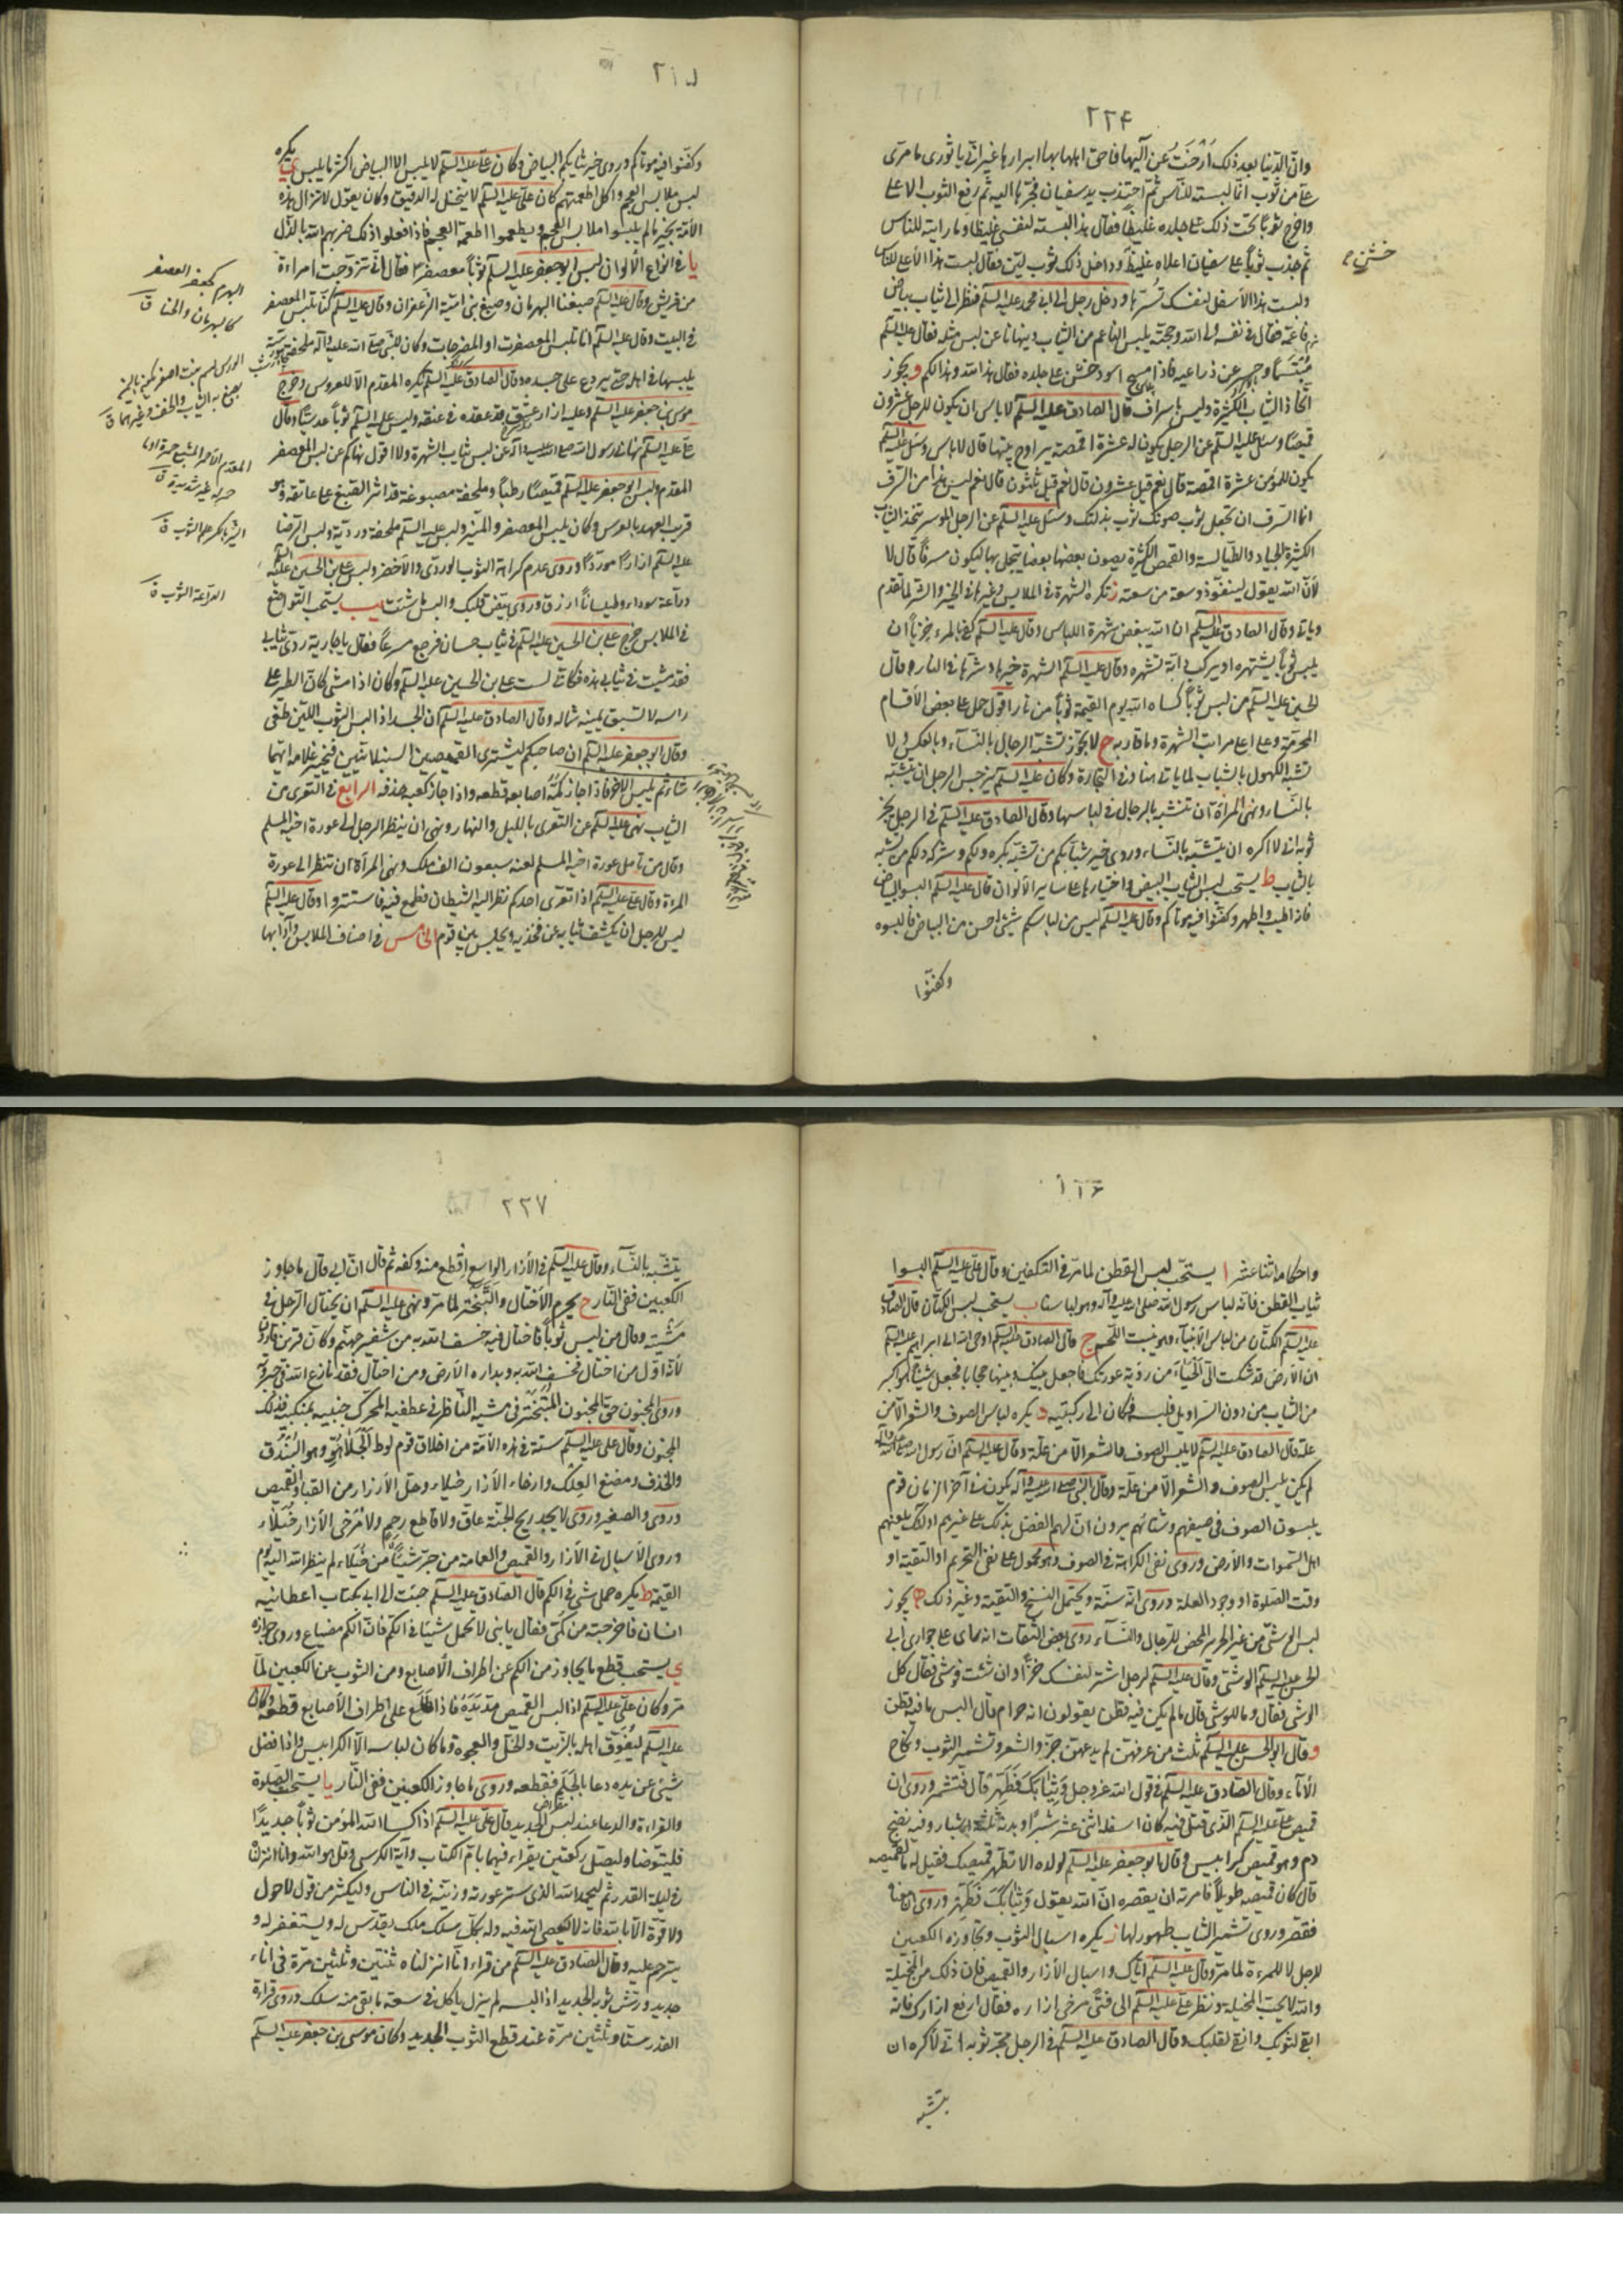 ٢٢۴
وانّ الدّنيا بعد ذلك ارخت عن آليها فاحق اهلها بها ابرارها غير انّي يا ثوري ما ترى
علّي من ثوب انّما لبسته للنّاس ثمّ اجتذب يد سفيان فجرّها اليه ثمّ رفع الثوب الاعلى
واخرج ثوباً تحت ذلك على جلده غليظاً فقال هذا لبسته لنفسي غليظاً وما رايته للناس
ثم جذب ثوباً على سفيان اعلاه غليظ وداخل ذلك ثوب ليّن فقال لبست هذا الاعلى للناس
ولبست هذا الاسفل لنفسك تسرّها ودخل رجل الى ابي محمد عليه السلم فنظر الى ثياب بياض
ناعمة فقال في نفسه ولي الله وحجته يلبس الناعم من الثياب وينهانا عن لبس مثله فقال عليه السلم
متبسّماً وحسر عن ذراعيه فاذا مسح اسود خشن على جلده فقال هذا لله وهذا لكم و يجوز
اتّخاذ الثياب الكثيرة وليس باسراف قال الصادق عليه السلم لا باس ان يكون للرجل عشرون
قميصاً وسئل عليه السلم عن الرجل يكون له عشرة اقمصة يراوح بينها قال لا باس وسئل عليه السلم
يكون للمؤمن عشرة اقمصة قال نعم قيل عشرون قال نعم قيل ثلثون قال نعم ليس هذا من السّرف
انما السّرف ان تجعل ثوب صونك ثوب بذلتك وسئل عليه السلم عن الرجل الموسر يتخذ الثياب
الكثيرة الجياد والطيالسة والقمص الكثيرة يصون بعضها بعضا يتجمل بها ايكون مسرفاً قال لا
لانّ الله يقول لينفق ذو سعة من سعته ز تكره الشهرة في الملابس وغيرها في الخير والشر لما تقدم
وياتي وقال الصادق عليه السلم ان الله يبغض شهرة اللباس وقال عليه السلم كفى بالمرء خزياً ان
يلبس ثوباً يشهره او يركب دابّة تشهره وقال عليه السلم الشهرة خيرها وشرّها في النار وقال
الحسين عليه السلم من لبس ثوباً كساه الله يوم القيمة ثوباً من نار اقول حمل على بعض الاقسام
المحرّمة وعلى اعلى مراتب الشهرة وما قاربه ح لا يجوز تشبّه الرجال بالنّسآء وبالعكس ولا
تشبّه الكهول بالشباب لما ياتي هنا وفي التجارة وكان عليه السلم يزجر الرجل ان يتشبّه
بالنّساء وينهى المراة ان تتشبّه بالرجال في لباسها وقال الصادق عليه السلم في الرجل يجرّ
ثوبه اني لاكره ان يتشبّه بالنّساء وروي خير شبابكم من تشبّه بكهولكم وشرّ كهولكم من تشبّه
بالشباب ط يستحب لبس الثياب البيض واختيارها على ساير الالوان قال عليه السلم البسوا البياض
فانه اطيب واطهر وكفّنوا فيه موتاكم وقال عليه السلم ليس من لباسكم شيئ احسن من البياض فالبسوه
وكفنّوا
خشن
وكفّنوا فيه موتاكم وروي خير ثيابكم البياض وكان علي عليه السلم لا يلبس الا البياض اكثر ما يلبس ي يكره
لبس ملابس العجم واكل اطعمتهم كان علي عليه السلم لا ينخل له الدقيق وكان يقول لا تزال هذه
الامّة بخير ما لم يلبسوا ملابس العجم ويطعموا اطعمة العجم فاذا فعلوا ذلك ضربهم الله بالذّل
يا في انواع الالوان لبس ابو جعفر عليه السلم ثوباً معصفراً فقال انّي تزوّجت امراءة
من قريش وقال عليه السلم صبغنا البهرمان وصبغ بني اميّة الزّعفران وقال عليه السلم كنّا نلبس المعصفر
في البيت وقال عليه السلم انا نلبس المعصفرات او المضرجات وكان للنّبي صلى الله عليه وآله ملحفة مورّسة
يلبسها في اهله حتى يردع على جسده وقال الصادق عليه السلم يكره المفدم الاّ للعروس وخرج
موسى بن جعفر عليه السلم وعليه ازار ممشّق قد عقده في عنقه ولبس عليه السلم ثوباً عدسيّاً وقال
علي عليه السلم نهاني رسول الله صلى الله عليه وآله عن لبس ثياب الشهرة ولا اقول نهاكم عن لبس المعصفر
المفدم ولبس ابو جعفر عليه السلم قميصاً رطباً وملحفة مصبوغة قد اثر الصّبغ على عاتقه وهو
قريب العهد بالعرس وكان يلبس المعصفر والمنيّر ولبس عليه السلم ملحفة ورديّة ولبس الرّضا
عليه السلم ازاراً مورّداً وروي عدم كراهة الثوب الوردي والاخضر ولبس علي بن الحسين عليه السلم
درّاعة سوداء وطيلساناً ازرق وروي بيّض قلبك والبس ما شئت يب يستحب التواضع
في الملابس خرج علي بن الحسين عليه السلم في ثياب حسان فرجع مسرعاً فقال يا جارية ردّي ثيابي
فقد مشيت في ثيابي هذه فكاني لست علي بن الحسين عليه السلم وكان اذا مشى كان الطير على
راسه لا تسبق يمينه شماله وقال الصادق عليه السلم ان الجسد اذا لبس الثوب اللّين طغى
وقال ابو جعفر عليه السلم ان صاحبكم ليشتري القميصين السنبلانيين فيخيّر غلامه ايّهما
شاء ثم يلبس الاخر فاذا جاز كمّه اصابعه قطعه واذا جاز كعبه حذفه الرابع في التعرّي من
الثياب نهى عليه السلم عن التعري بالليل والنهار ونهى ان ينظر الرجل الى عورة اخيه المسلم
وقال من تامل عورة اخيه المسلم لعنه سبعون الف ملك ونهى المرأة ان تنظر الى عورة
المرءة وقال علي عليه السلم اذا تعرّى احدكم نظر اليه الشيطان فطمع فيه فاستتروا وقال عليه السلم
ليس للرجل ان يكشف ثيابه عن فخذيه ويجلس بين قوم الخامس في اصناف الملابس وآدابها
البهرم كجعفر العصفر
كالبهرمان والحنا ق
الورس
المفدم الاحمر المشبع حمرة
الدرّاعة الثوب ق
واحكامه اثنا عشر ا يستحبّ لبس القطن لما مرّ في التكفين وقال علي عليه السلم البسوا
ثياب القطن فانه لباس رسول الله صلى الله عليه وآله وهو لباسنا ب يستحب لبس الكتّان قال الصادق
عليه السلم الكتّان من لباس الانبيآء وهو ينبت اللّحم ج قال الصادق عليه السلم اوحى الله الى ابراهيم عليه السلم
ان الارض قد شكت اليّ الحياء من رؤية عورتك فاجعل بينك وبينها حجابا فجعل شيئاً هو اكبر
من الثياب من دون السراويل فلبسه فكان الى ركبتيه د يكره لباس الصوف والشعر الاّ من
علّة قال الصادق عليه السلم لا يلبس الصوف والشعر الاّ من علّة وقال عليه السلم انّ رسول الله صلى الله عليه وآله
لم يكن يلبس الصوف والشعر الاّ من علّة وقال النبي صلى الله عليه وآله يكون في آخر الزمان قوم
يلبسون الصوف في صيفهم وشتائهم يرون انّ لهم الفضل بذلك على غيرهم اولئك يلعنهم
اهل السّموات والارض وروي نفي الكراهة في الصوف وهو محمول على نفي التحريم او التقيّة او
وقت الصّلوة او وجود العلة وروي انّه سنّة ويحتمل النسخ والتقية وغير ذلك ه يجوز
لبس الوشّي من غير الحرير المحض للرّجال والنّسآء روى بعض الثقات انه راى على جواري ابي
الحسن عليه السلم الوشي وقال عليه السلم لرجل اشتر لنفسك خزّاً وان شئت فوشي فقال كل
الوشي فقال وما الوشي قال ما لم يكن فيه قطن يقولون انه حرام قال البس ما فيه قطن
و قال ابو الحسن عليه السلم ثلث من عرفهنّ لم يدعهنّ جزّ الشعر وتشمير الثوب ونكاح
الاماء وقال الصادق عليه السلم في قول الله عز وجل وثيابك فطهّر قال فشمّر وروي ان
قميص علي عليه السلم الذي قتل فيه كان اسفله اثنى عشر شبراً وبدنه ثلثة اشبار وفيه نضح
دم وهو قميص كرابيس وقال ابو جعفر عليه السلم لولده الا تطهّر قميصك فقيل له ما لقميصه
قال كان قميصه طويلاً فامرته ان يقصره انّ الله يقول وثيابك فطهّر وروي ان معناه
فقصّر وروي تشمير الثياب طهور لها ز يكره اسبال الثوب وتجاوزه الكعبين
للرجل لا للمرءة لما مرّ وقال عليه السلم ايّاك واسبال الازار والقميص فان ذلك من المخيلة
والله لا يحبّ المخيلة ونظر علي عليه السلم الى فتىً مرخي ازاره فقال ارفع ازارك فانه
ابقى لثوبك وانقى لقلبك وقال الصادق عليه السلم في الرجل يجرّ ثوبه اني لاكره ان
يتشبه
٢٢٧
يتشبّه بالنّسآء وقال عليه السلم في الازار الواسع اقطع منه وكفه ثم قال ان ابي قال ما جاوز
الكعبين ففي النّار ح يحرم الاختيال والتّبختر لما مرّ ونهى عليه السلم ان يختال الرّجل في
مشيته وقال من لبس ثوباً فاختال فيه خسف الله به من شفير جهنّم وكان قرين قارون
لانّه اوّل من اختال فخسف الله به وبداره الارض ومن اختال فقد نازع الله في جبروته
وروي المجنون حقّ المجنون المتبختر في مشيه النّاظر في عطفيه المحرّك جنبيه بمنكبيه فذلك
المجنون وقال علي عليه السلم ستّة في هذه الامّة من اخلاق قوم لوط الجلاهق وهو البندق
والخذف ومضغ العلك وارخاء الازار خيلاء وحلّ الازرار من القباء والقميص
وروي والصفير وروي لا يجد ريح الجنّة عاقّ ولا قاطع رحم ولا مرخي الازار خيلاء
وروي الاسبال في الازار والقميص والعمامة من جرّ شيئاً من خيلاء لم ينظر الله اليه يوم
القيمة ط يكره حمل شي في الكم قال الصادق عليه السلم جئت الى ابي بكتاب اعطانيه
انسان فاخرجته من كمّي فقال يا بني لا تحمل شيئا في الكم فان الكم مضياع وروي جوازه
ي يستحب قطع ما يجاوز من الكم عن اطراف الاصابع ومن الثوب عن الكعبين لما
مرّ وكان علي عليه السلم اذا لبس القميص مدّ يده فاذا طلع على اطراف الاصابع قطعه وكان
عليه السلم ليقوت اهله بالزّيت والخلّ والعجوة وما كان لباسه الاّ الكرابيس واذا فضل
شيئ عن يده دعا بالجلم فقطعه وروي ما جاوز الكعبين ففي النّار يا يستحب الصّلوة
والقراءة والدعا عند لبس الجديد قال علي عليه السلم اذا كسا الله المؤمن ثوباً جديداً
فليتوضا وليصل ركعتين يقراء فيهما بامّ الكتاب وآية الكرسي وقل هو الله وانا انزلناه
في ليلة القدر ثم ليحمد الله الذي ستر عورته وزيّنه في الناس وليكثر من قول لا حول
ولا قوة الاّ بالله فانه لا يعصي الله فيه وله بكلّ سلك ملك يقدّس له ويستغفر له و
يترحم عليه وقال الصادق عليه السلم من قراء انّا انزلناه ثنتين وثلثين مرّة في اناء
جديد ورشّ ثوبه الجديد اذا لبسه لم يزل ياكل في سعة ما بقي منه سلك وروي قراءة
القدر ستا وثلثين مرّة عند قطع الثوب الجديد وكان موسى بن جعفر عليه السلم